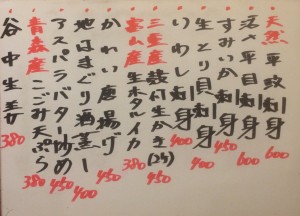 天然平政刺身 600
活〆平目刺身 600
すみいか刺身 450
生とり貝刺身 400
いわし刺身 400
三重産殻付生かき(2ケ) 450
富山産生ホタルイカ 380
かわい唐揚げ 450
地はまぐり酒蒸し 400
アスパラバター炒め 450
青森産こごみ天ぷら 380
谷中生姜 380